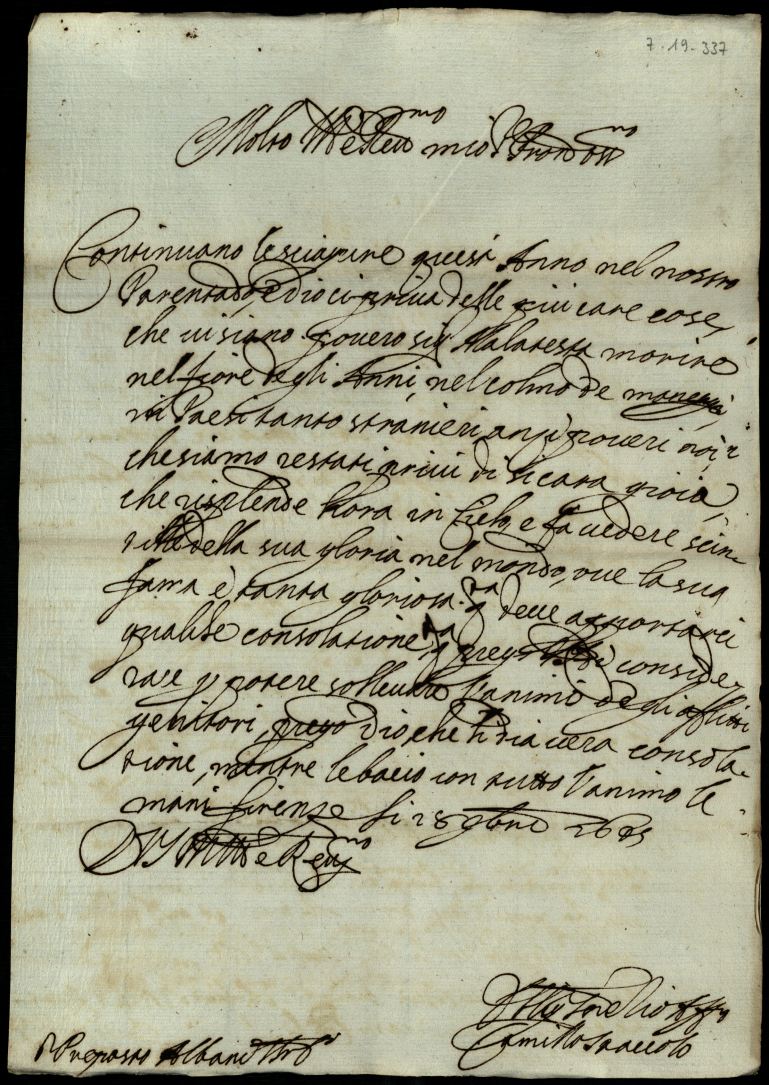 7.19.337
Molto Ill.re e Rev.mo mio P.ron oss.mo
Continuano le sciagure quest'Anno nel nostro
Parentado, e dio ci priva delle piu care cose,
che vi siano. povero sig.r Malatesta morire
nel fiore degli Anni, nel colmo de maneggi,
in Paesi tanto stranieri, anzi poveri noi
che siamo restati privi di si cara gioia,
che risplende hora in Cielo, e fa vedere scin-
tille della sua gloria nel mondo, ove la sua
fama è tanta gloriosa. deve apportarci
qualche consolatione, prego conside-
rare p potere sollevare l'animo degli afflitti
genitori, prego dio, che li dia vera consola-
tione, mentre le bacio con tutto l'animo le
mani. firenze li 28
D V S M Ill.re e Rev.ma
Camillo Staccoli
S.r Preposto Albani